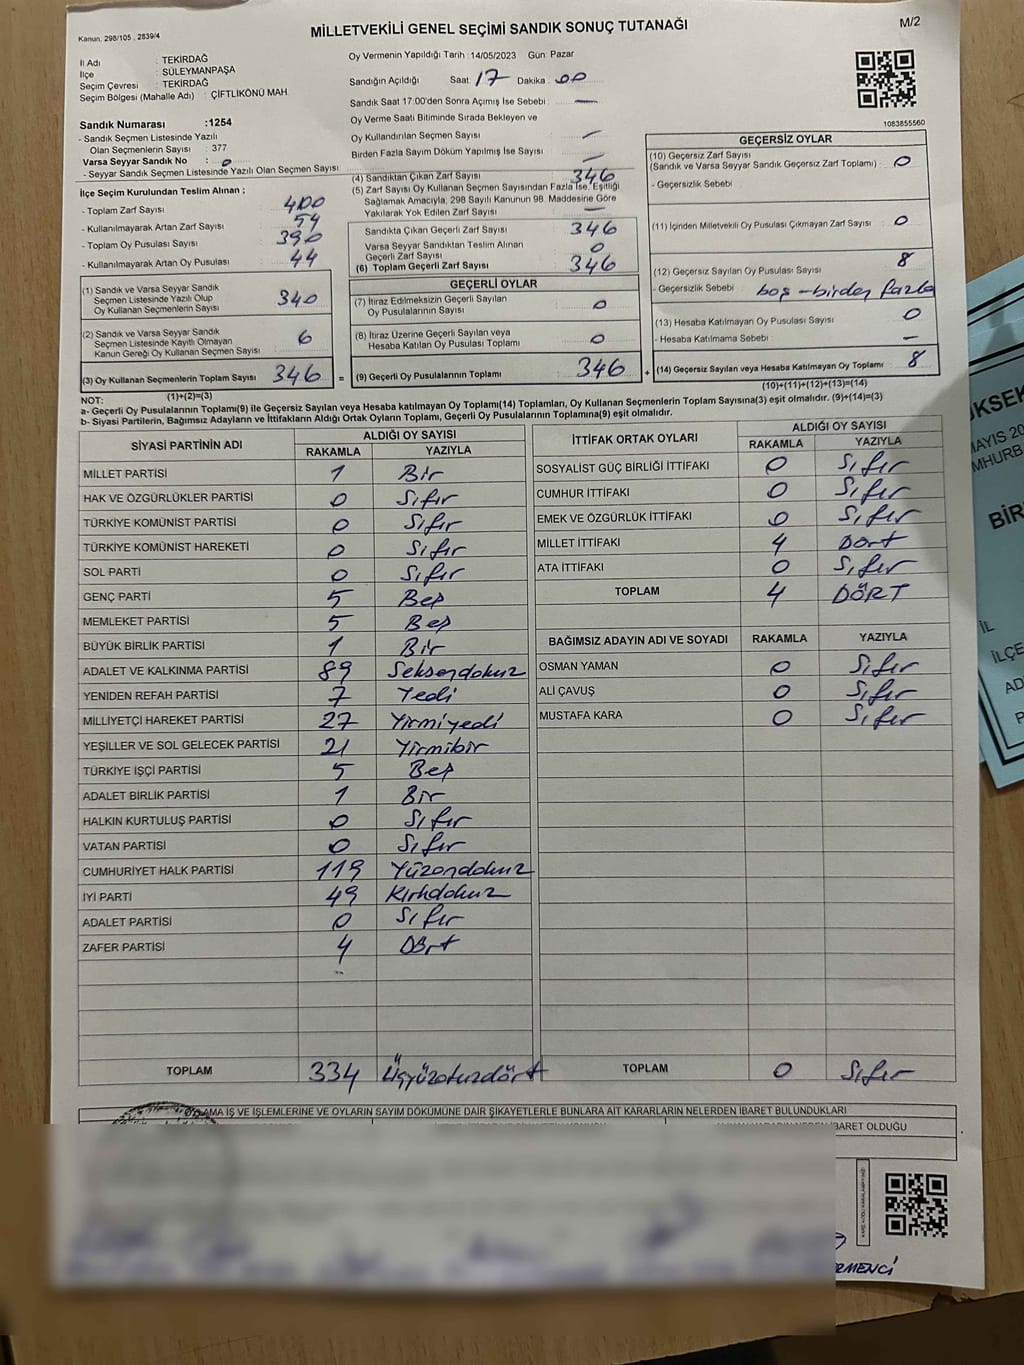 Kanun, 298/105 , 2839/4
MİLLETVEKİLİ GENEL SEÇİMİ SANDIK SONUÇ TUTANAĞI
M/2
İl Adı : TEKİRDAĞ
İlçe : SÜLEYMANPAŞA
Seçim Çevresi : TEKİRDAĞ
Seçim Bölgesi (Mahalle Adı) : ÇİFTLİKÖNÜ MAH.
Oy Vermenin Yapıldığı Tarih : 14/05/2023 Gün: Pazar
Sandığın Açıldığı Saat: 17 Dakika : 00
Sandık Saat 17:00'den Sonra Açımış İse Sebebi : —
Oy Verme Saati Bitiminde Sırada Bekleyen ve
Oy Kullandırılan Seçmen Sayısı : —
Birden Fazla Sayım Döküm Yapılmış İse Sayısı : —
1083855560
Sandık Numarası :1254
- Sandık Seçmen Listesinde Yazılı
Olan Seçmenlerin Sayısı : 377
Varsa Seyyar Sandık No : 0
- Seyyar Sandık Seçmen Listesinde Yazılı Olan Seçmen Sayısı :
İlçe Seçim Kurulundan Teslim Alınan ;
- Toplam Zarf Sayısı : 400
- Kullanılmayarak Artan Zarf Sayısı : 54
- Toplam Oy Pusulası Sayısı : 390
- Kullanılmayarak Artan Oy Pusulası : 44
(1) Sandık ve Varsa Seyyar Sandık
Seçmen Listesinde Yazılı Olup
Oy Kullanan Seçmenlerin Sayısı : 340
(2) Sandık ve Varsa Seyyar Sandık
Seçmen Listesinde Kayıtlı Olmayan
Kanun Gereği Oy Kullanan Seçmen Sayısı : 6
(3) Oy Kullanan Seçmenlerin Toplam Sayısı 346 =
(1)+(2)=(3)
(4) Sandıktan Çıkan Zarf Sayısı : 346
(5) Zarf Sayısı Oy Kullanan Seçmen Sayısından Fazla İse, Eşitliği
Sağlamak Amacıyla, 298 Sayılı Kanunun 98. Maddesine Göre
Yakılarak Yok Edilen Zarf Sayısı : —
Sandıkta Çıkan Geçerli Zarf Sayısı : 346
Varsa Seyyar Sandıktan Teslim Alınan
Geçerli Zarf Sayısı : 0
(6) Toplam Geçerli Zarf Sayısı : 346
GEÇERLİ OYLAR
(7) İtiraz Edilmeksizin Geçerli Sayılan
Oy Pusulalarının Sayısı : 0
(8) İtiraz Üzerine Geçerli Sayılan veya
Hesaba Katılan Oy Pusulası Toplamı : 0
(9) Geçerli Oy Pusulalarının Toplamı 346 +
GEÇERSİZ OYLAR
(10) Geçersiz Zarf Sayısı
(Sandık ve Varsa Seyyar Sandık Geçersiz Zarf Toplamı) : 0
- Geçersizlik Sebebi :
(11) İçinden Milletvekili Oy Pusulası Çıkmayan Zarf Sayısı : 0
(12) Geçersiz Sayılan Oy Pusulası Sayısı : 8
- Geçersizlik Sebebi : boş - birden fazla
(13) Hesaba Katılmayan Oy Pusulası Sayısı : 0
- Hesaba Katılmama Sebebi : —
(14) Geçersiz Sayılan veya Hesaba Katılmayan Oy Toplamı 8
(10)+(11)+(12)+(13)=(14)
NOT:
a- Geçerli Oy Pusulalarının Toplamı(9) ile Geçersiz Sayılan veya Hesaba katılmayan Oy Toplamı(14) Toplamları, Oy Kullanan Seçmenlerin Toplam Sayısına(3) eşit olmalıdır. (9)+(14)=(3)
b- Siyasi Partilerin, Bağımsız Adayların ve İttifakların Aldığı Ortak Oyların Toplamı, Geçerli Oy Pusulalarının Toplamına(9) eşit olmalıdır.
SİYASİ PARTİNİN ADI ALDIĞI OY SAYISI
RAKAMLA YAZIYLA
MİLLET PARTİSİ 1 Bir
HAK VE ÖZGÜRLÜKLER PARTİSİ 0 Sıfır
TÜRKİYE KOMÜNİST PARTİSİ 0 Sıfır
TÜRKİYE KOMÜNİST HAREKETİ 0 Sıfır
SOL PARTİ 0 Sıfır
GENÇ PARTİ 5 Beş
MEMLEKET PARTİSİ 5 Beş
BÜYÜK BİRLİK PARTİSİ 1 Bir
ADALET VE KALKINMA PARTİSİ 89 Seksendokuz
YENİDEN REFAH PARTİSİ 7 Yedi
MİLLİYETÇİ HAREKET PARTİSİ 27 Yirmiyedi
YEŞİLLER VE SOL GELECEK PARTİSİ 21 Yirmibir
TÜRKİYE İŞÇİ PARTİSİ 5 Beş
ADALET BİRLİK PARTİSİ 1 Bir
HALKIN KURTULUŞ PARTİSİ 0 Sıfır
VATAN PARTİSİ 0 Sıfır
CUMHURİYET HALK PARTİSİ 119 Yüzondokuz
İYİ PARTİ 49 Kırkdokuz
ADALET PARTİSİ 0 Sıfır
ZAFER PARTİSİ 4 Dört
TOPLAM 334 Üçyüzotuzdört
İTTİFAK ORTAK OYLARI ALDIĞI OY SAYISI
RAKAMLA YAZIYLA
SOSYALİST GÜÇ BİRLİĞİ İTTİFAKI 0 Sıfır
CUMHUR İTTİFAKI 0 Sıfır
EMEK VE ÖZGÜRLÜK İTTİFAKI 0 Sıfır
MİLLET İTTİFAKI 4 Dört
ATA İTTİFAKI 0 Sıfır
TOPLAM 4 DÖRT
BAĞIMSIZ ADAYIN ADI VE SOYADI RAKAMLA YAZIYLA
OSMAN YAMAN 0 Sıfır
ALİ ÇAVUŞ 0 Sıfır
MUSTAFA KARA 0 Sıfır
TOPLAM 0 Sıfır
AMA İŞ VE İŞLEMLERİNE VE OYLARIN SAYIM DÖKÜMÜNE DAİR ŞİKAYETLERLE BUNLARA AİT KARARLARIN NELERDEN İBARET BULUNDUKLARI
İBARET OLDUĞU
RMENCİ
ÜKSEK
MAYIS 20
MHURB
BİR
İL
İLÇE
AD
P